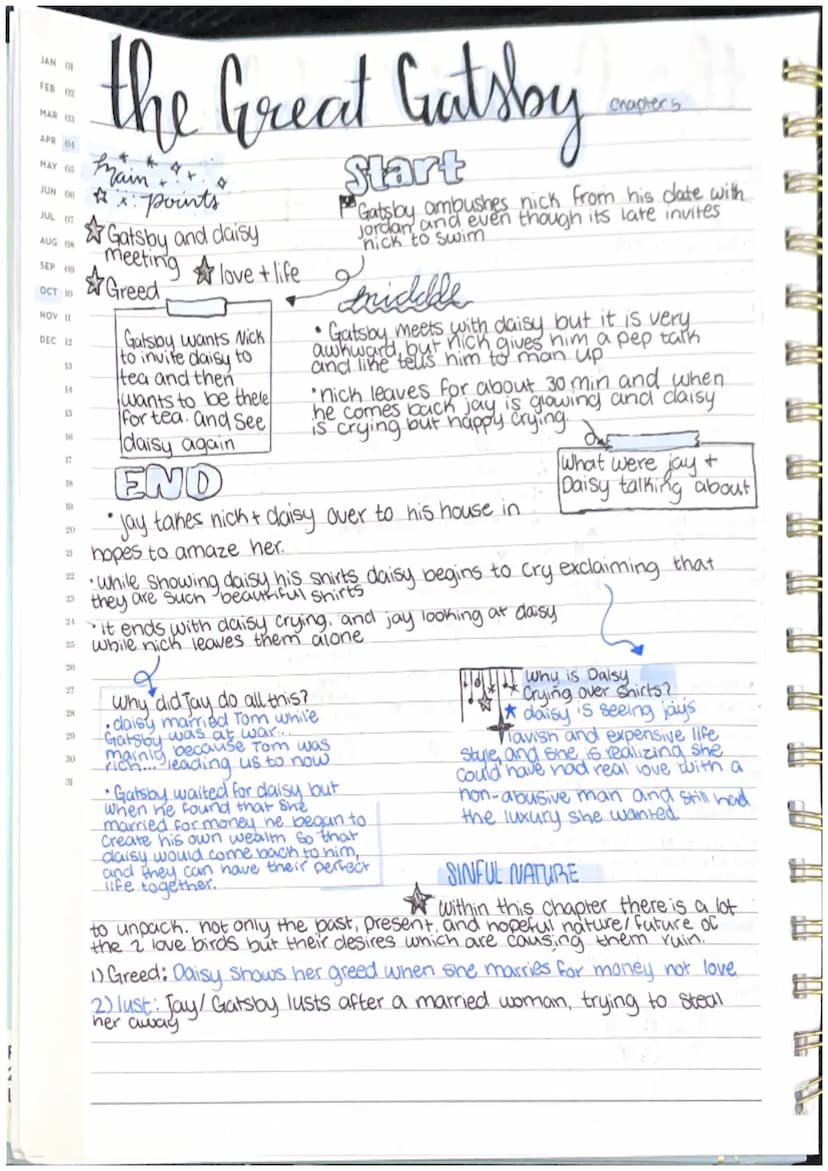 the Great Gatsby chapter 5
JAN 01
FEB 02
MAR 03
APR 04
MAY 05
JUN 06
JUL 07
AUG 08
SEP 09
OCT 10
NOV 11
DEC 12
13
14
15
16
17
18
19
20
21
22
23
24
25
26
27
28
29
30
31
Main
points
Gatsby and daisy
meeting
love + life
Greed
Start
Gatsby ambushes nick from his date with
jordan and even though its late invites
nick to swim
Gatsby wants Nick
to invite daisy to
tea and then
wants to be there
for tea. and see
daisy again
middle
• Gatsby meets with daisy but it is very
awkward, but nick gives him a pep talk
and like tells him to man up
• nick leaves for about 30 min and when
he comes back jay is glowing and daisy
is crying but happy crying
What were jay +
Daisy talking about
END
• jay takes nick + daisy over to his house in
hopes to amaze her.
• while showing daisy his shirts daisy begins to cry exclaiming that
they are such "beautiful shirts
• it ends with daisy crying, and jay looking at daisy
while nick leaves them alone
why did Jay do all this?
• daisy married Tom while
Gatsby was at war...
mainly because Tom was
rich... leading us to now
• Gatsby waited for daisy but
when he found that she
married for money he began to
create his own wealth so that
daisy would come back to him,
and they can have their perfect
life together.
Why is Daisy
Crying over Shirts?
daisy is seeing jays
lavish and expensive life
style, and she is realizing she
could have had real love with a
non-abusive man and still had
the luxury she wanted
SINFUL NATURE
Within this chapter there is a lot
to unpack. not only the past, present, and hopeful nature/future of
the 2 love birds but their desires which are causing them ruin.
1) Greed: Daisy shows her greed when she marries for money not love
2) lust: Jay/Gatsby lusts after a married woman, trying to steal
her away